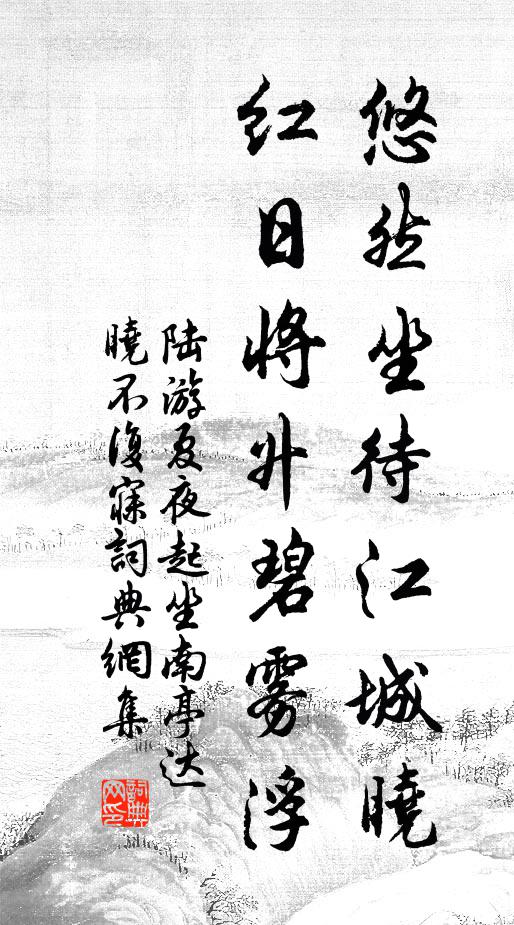 悠然坐待江城曉
红日将升碧雾浮
陆游夏夜起坐南亭达
曉不復寐詞典網集
詞典
网印